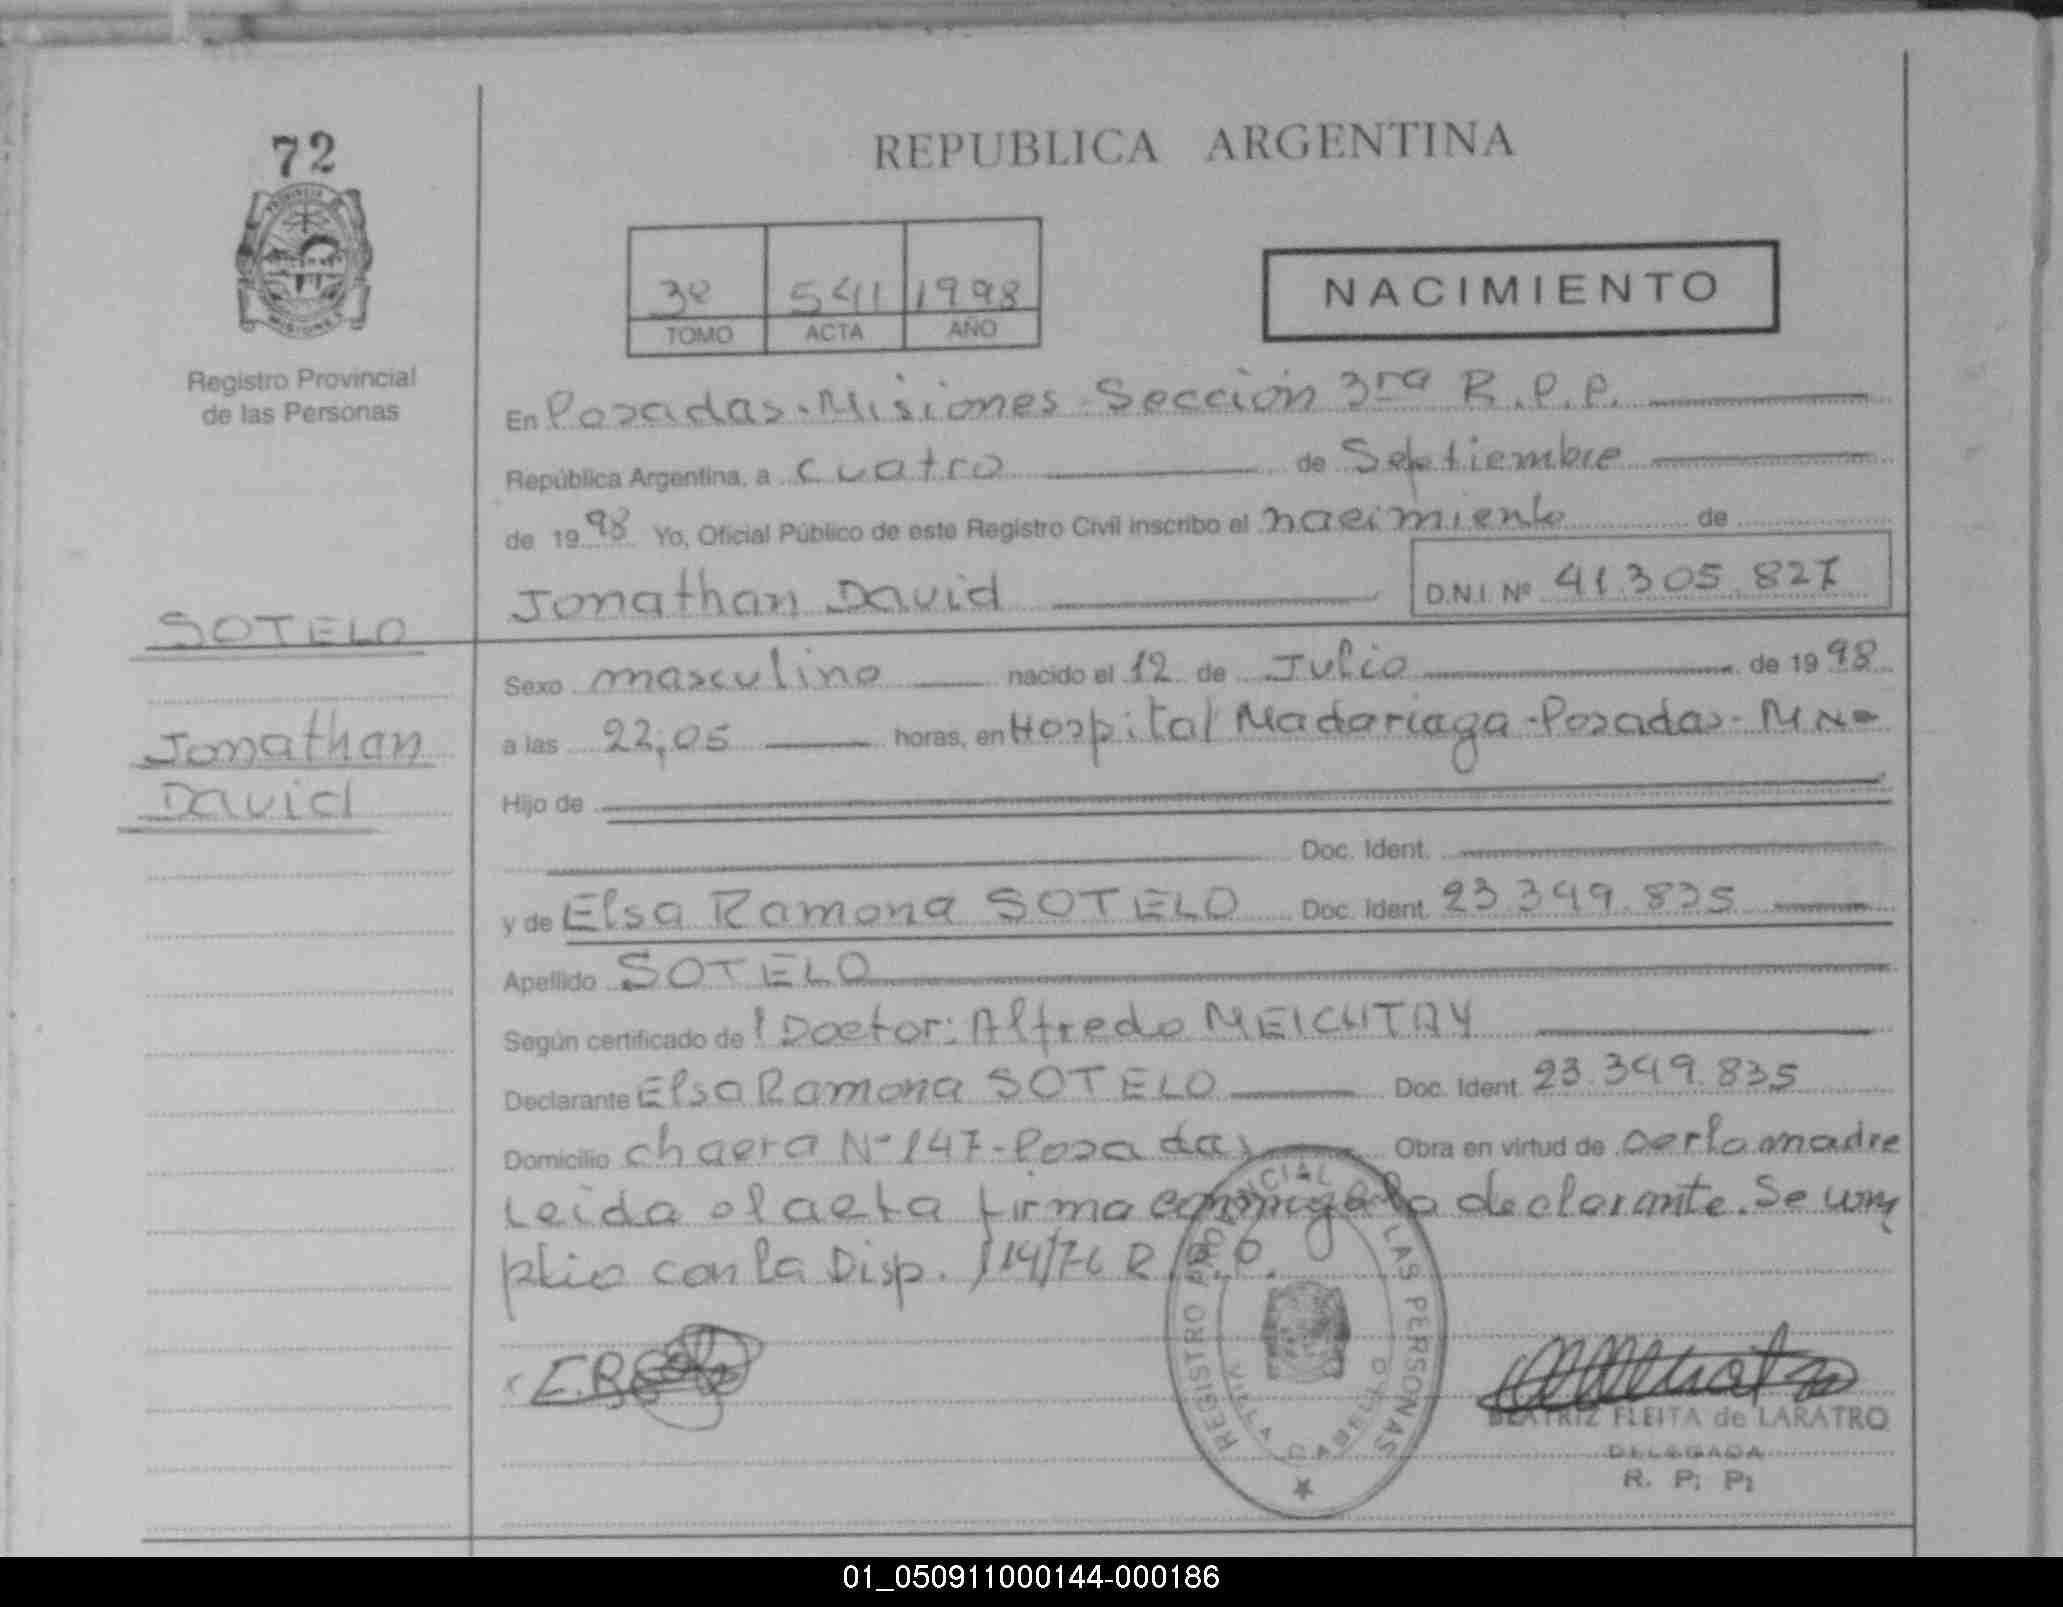 72
REPUBLICA ARGENTINA
3º 541 1998
TOMO ACTA AÑO
NACIMIENTO
Registro Provincial
de las Personas
En Posadas-Misiones-Sección 3ra R.P.P.
República Argentina, a cuatro de Septiembre
de 1998 Yo, Oficial Público de este Registro Civil inscribo el nacimiento de
Jonathan David D.N.I. Nº 41.305.827
SOTELO
Jonathan
David
Sexo masculino nacido el 12 de Julio de 1998
a las 22,05 horas, en Hospital Madariaga-Posadas-MN
Hijo de
Doc. Ident.
y de Elsa Ramona SOTELO Doc. Ident. 23.349.835
Apellido SOTELO
Según certificado del Doctor: Alfredo
Declarante Elsa Ramona SOTELO Doc. Ident. 23.349.835
Domicilio chacra Nº 147-Posadas Obra en virtud de serlamadre
Leida el acta firma conmigo la declarante. Se cum
plio con la Disp. 114/76 R.P.P.
REGISTRO PROVINCIAL DE LAS PERSONAS
VILLA CABELLO
BEATRIZ FLEITA de LARATRO
DELEGADA
R. P. P.
01_050911000144-000186